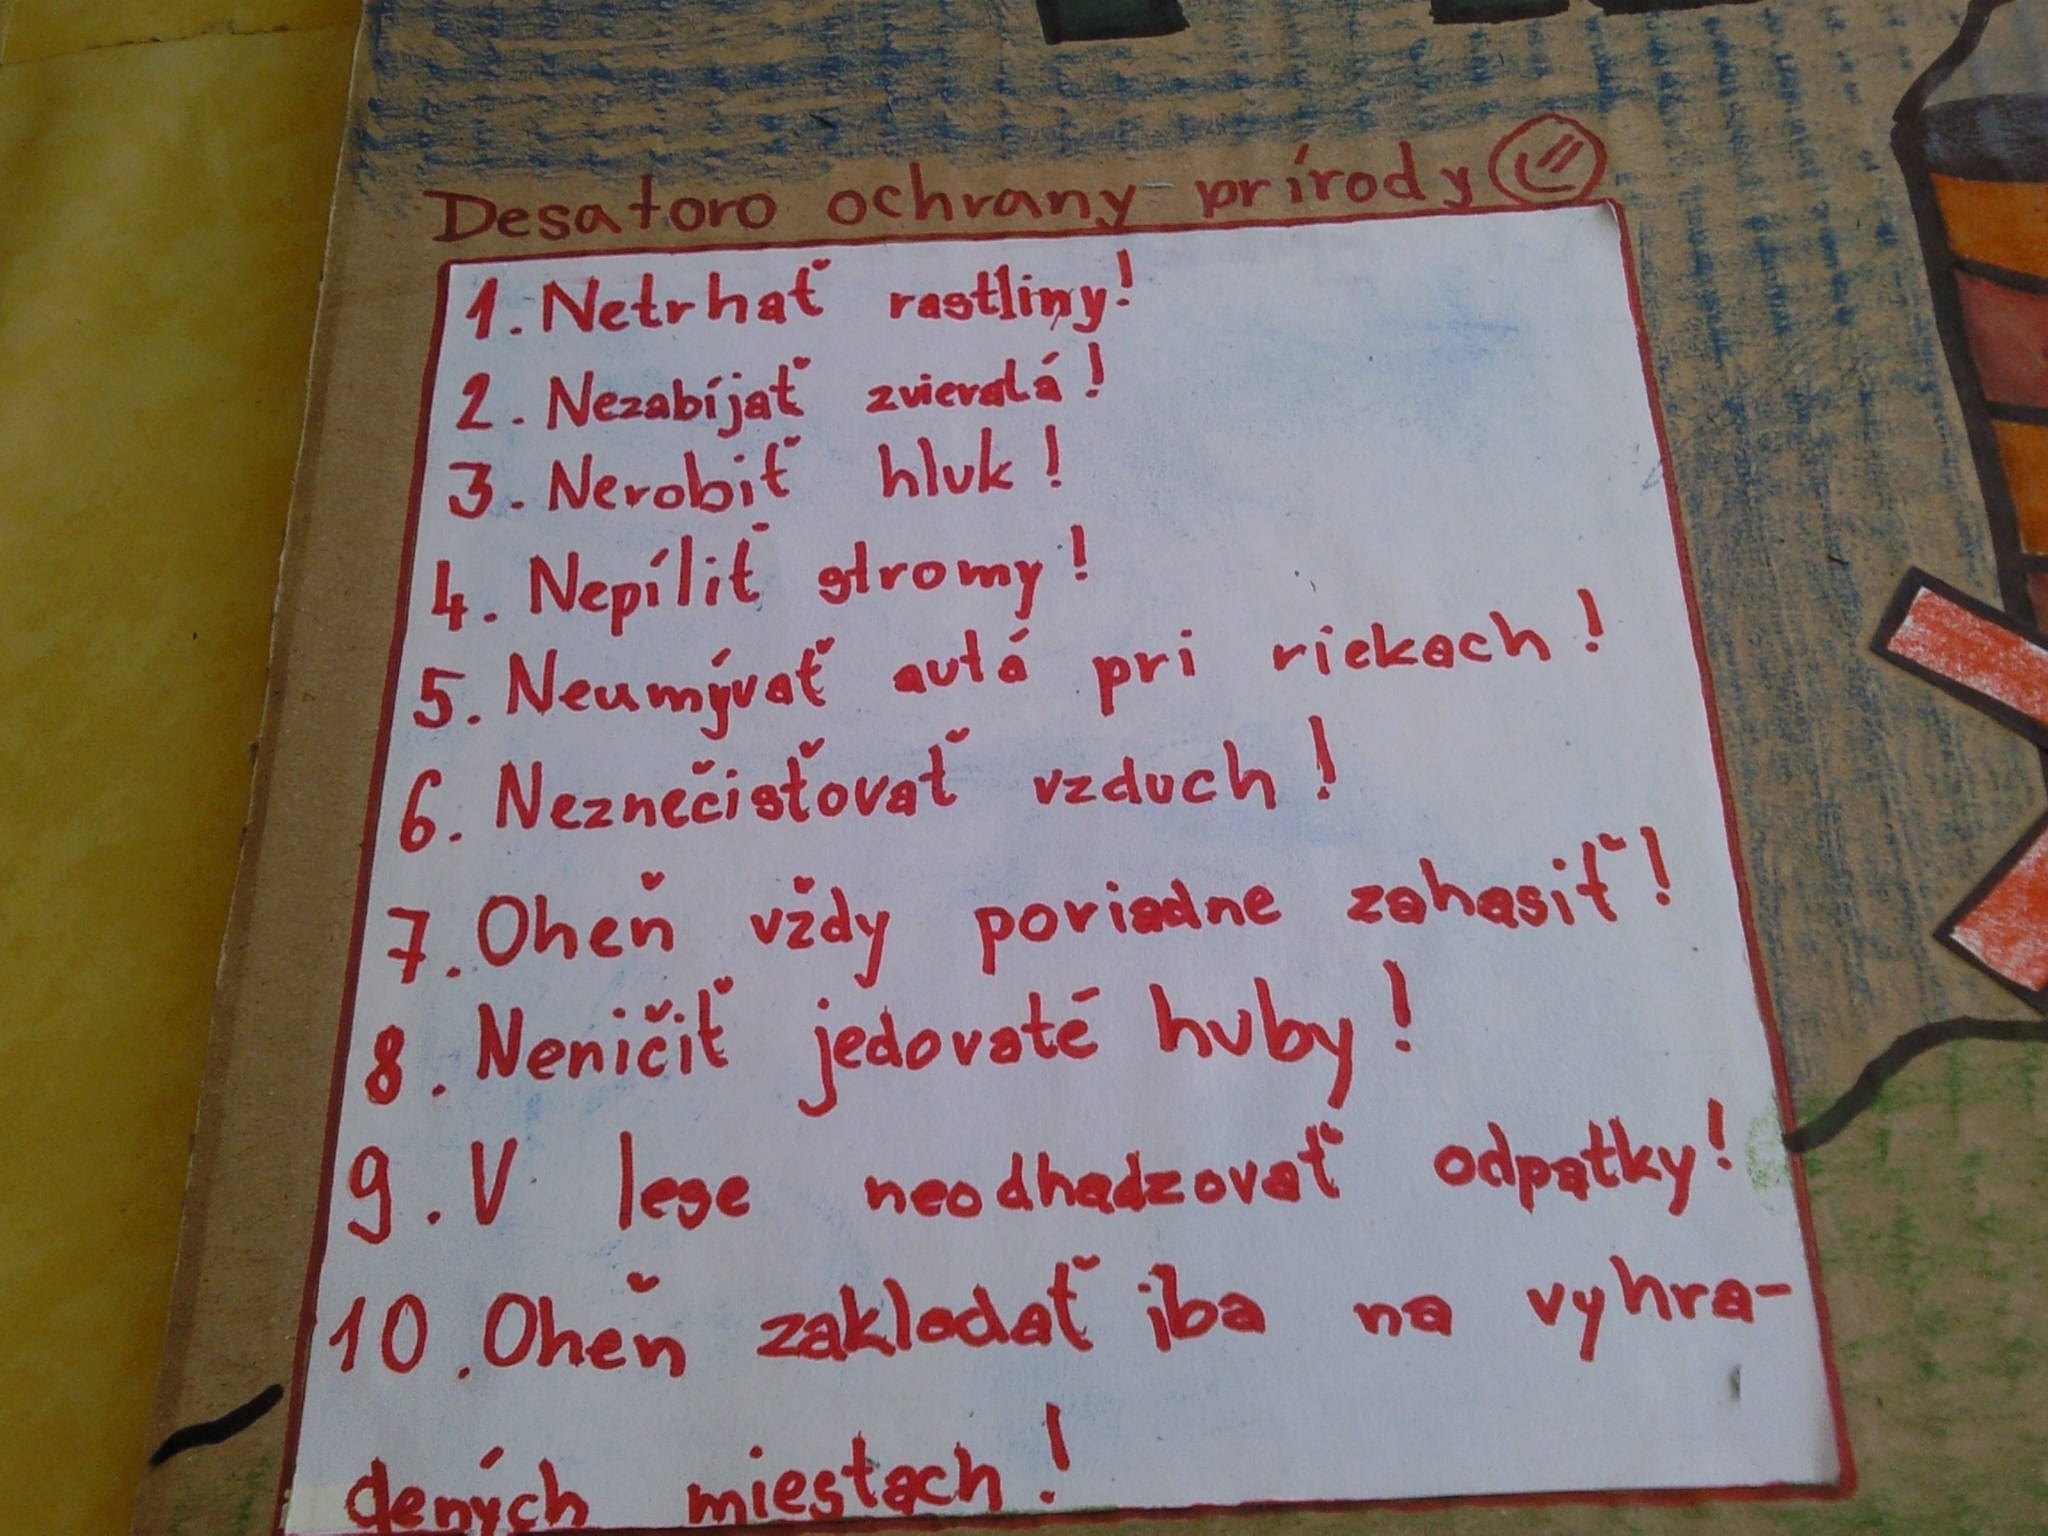 Desatoro ochrany prírody
1. Netrhať rastliny!
2. Nezabíjať zvieratá!
3. Nerobiť hluk!
4. Nepíliť stromy!
5. Neumývať autá pri riekach!
6. Neznečisťovať vzduch!
7. Oheň vždy poriadne zahasiť!
8. Neničiť jedovaté huby!
9. V lese neodhadzovať odpatky!
10. Oheň zakladať iba na vyhra-
dených miestach!